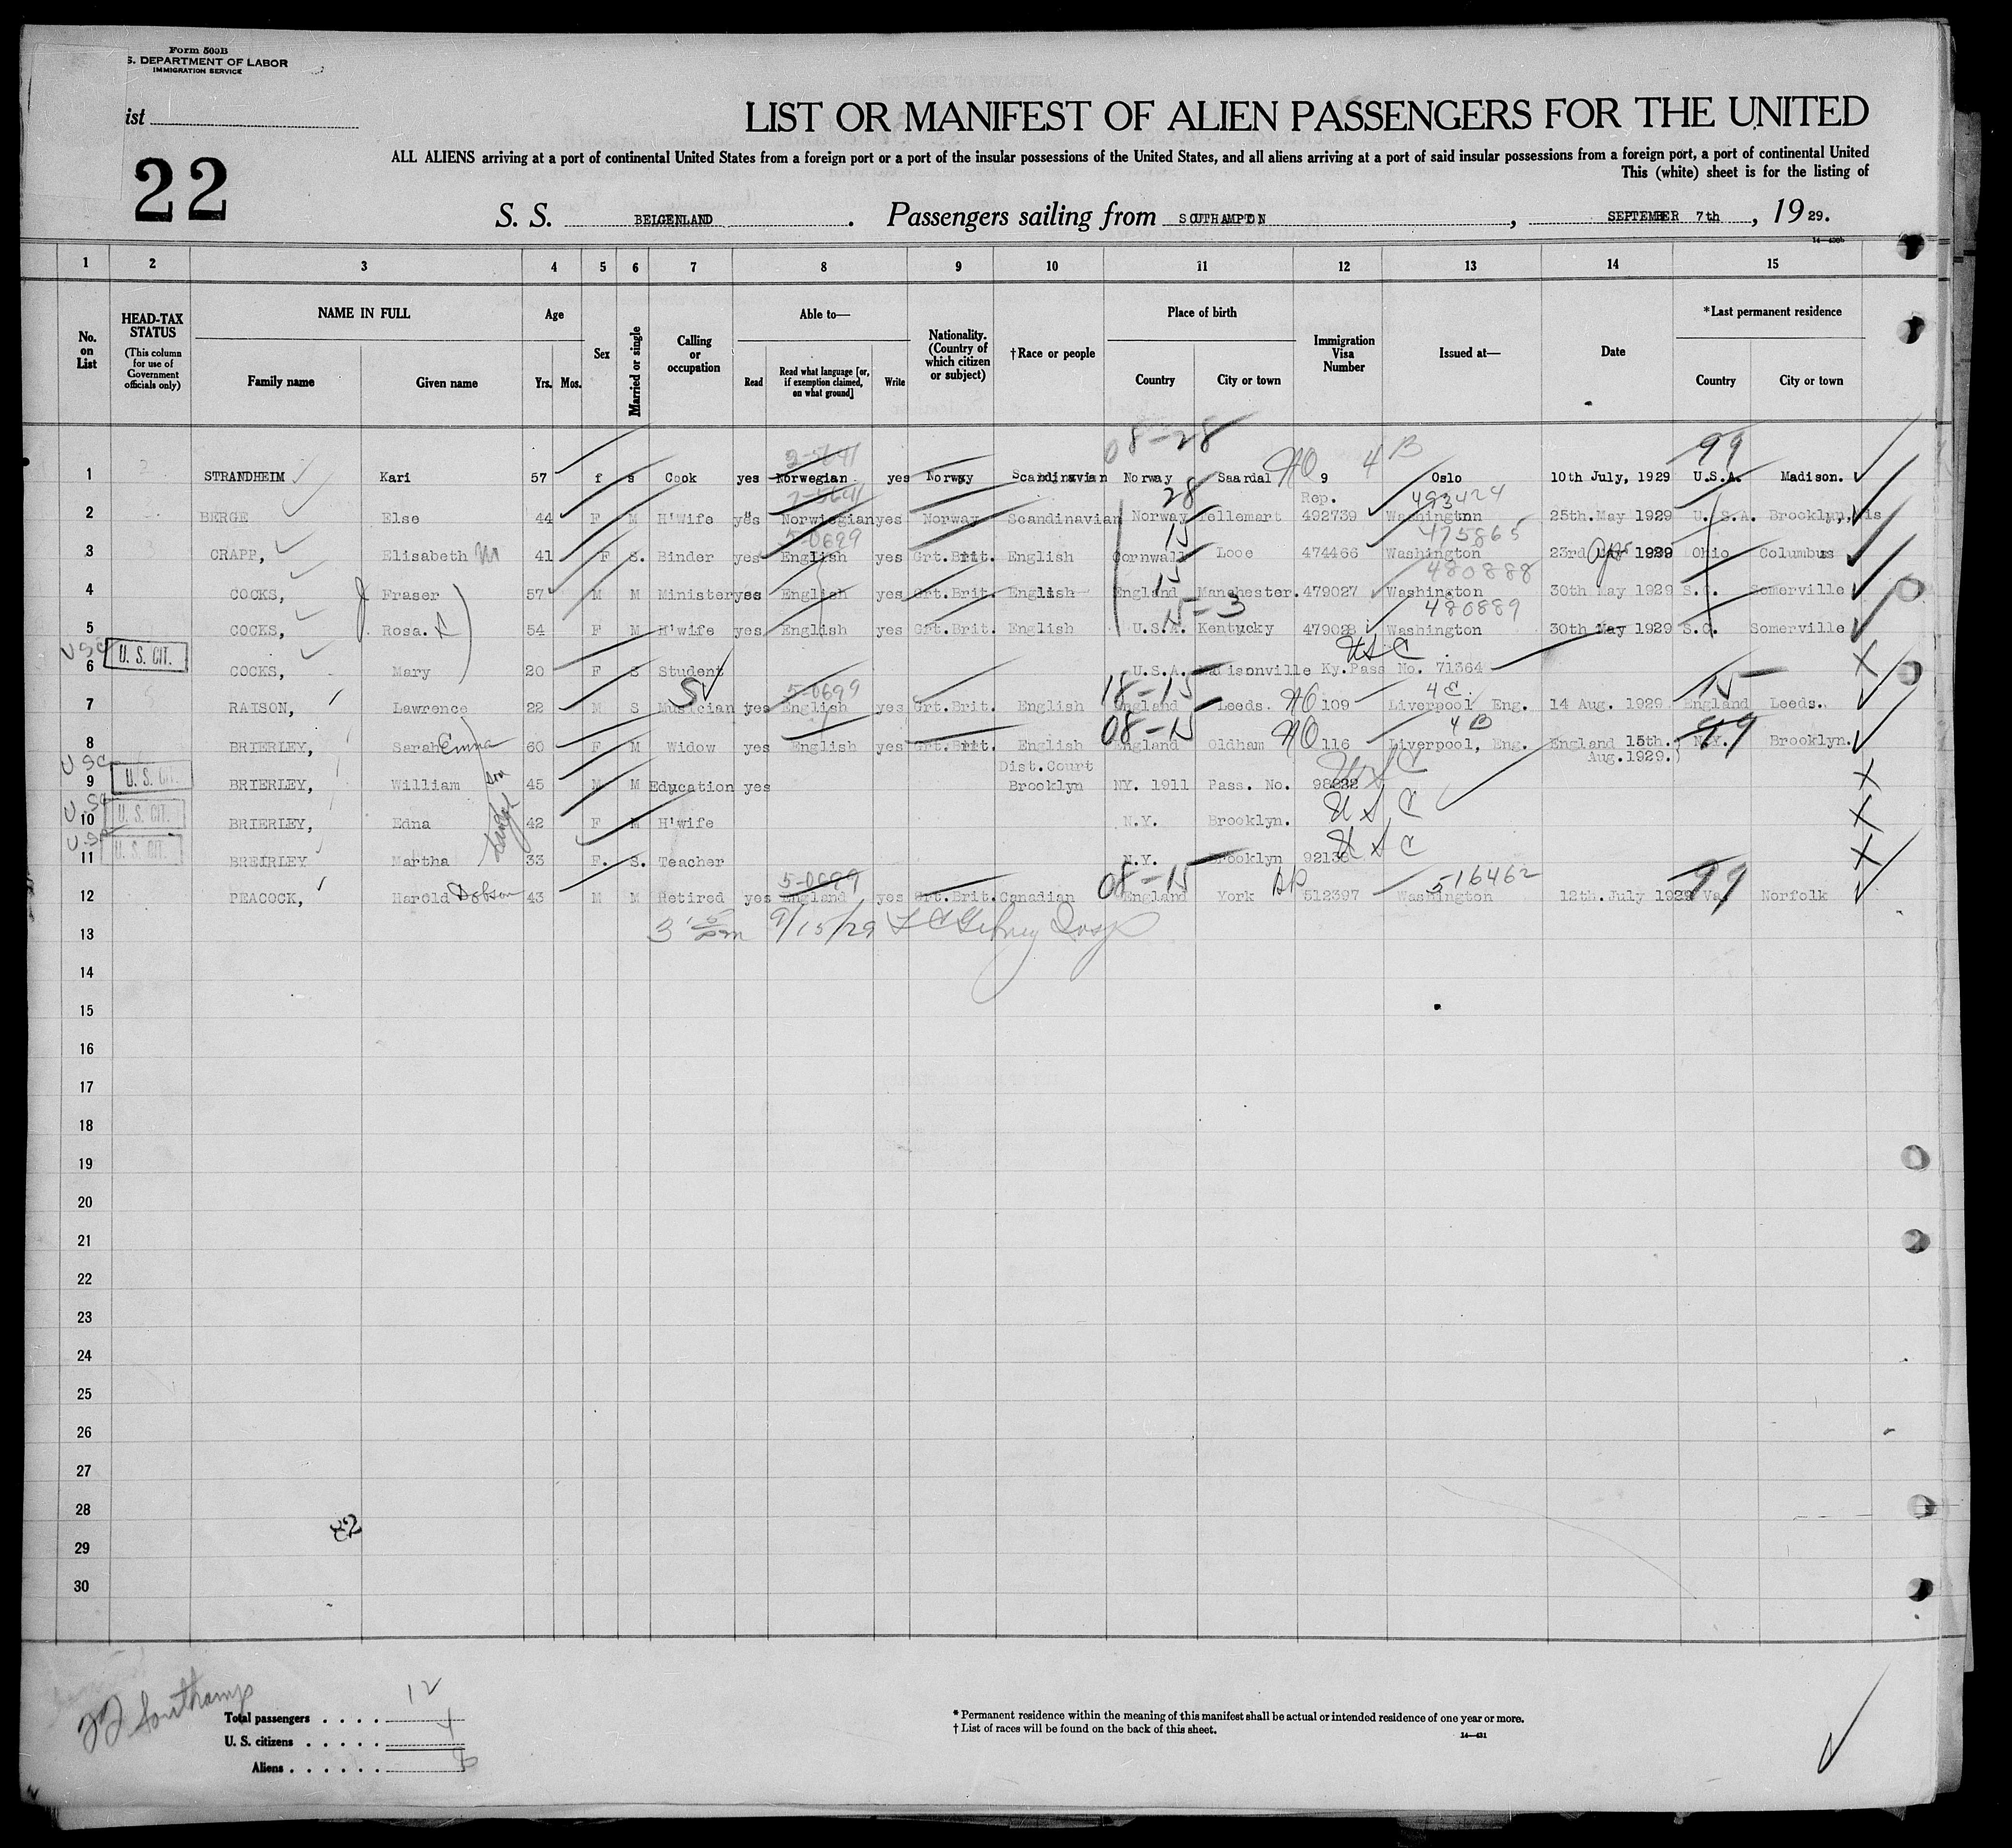 Form 500B
S. DEPARTMENT OF LABOR
IMMIGRATION SERVICE
ist
22
LIST OR MANIFEST OF ALIEN PASSENGERS FOR THE UNITED
ALL ALIENS arriving at a port of continental United States from a foreign port or a port of the insular possessions of the United States, and all aliens arriving at a port of said insular possessions from a foreign port, a port of continental United
This (white) sheet is for the listing of
S. S. BELGENLAND. Passengers sailing from SOUTHAMPTON, SEPTEMBER 7th, 19 29.
14—430b
1 2 3 4 5 6 7 8 9 10 11 12 13 14 15
No. on List
HEAD-TAX STATUS (This column for use of Government officials only)
NAME IN FULL Family name Given name
Age Yrs. Mos.
Sex
Married or single
Calling or occupation
Able to— Read Read what language [or, if exemption claimed, on what ground] Write
Nationality. (Country of which citizen or subject)
†Race or people
Place of birth Country City or town
Immigration Visa Number
Issued at—
Date
*Last permanent residence Country City or town
08-28 99
2-5641 4B
1 STRANDHEIM Kari 57 f s Cook yes Norwegian yes Norway Scandinavian Norway Saardal 9 Oslo 10th July, 1929 U.S.A. Madison.
2-5641 28 Rep. 493424
2 BERGE Else 44 F M H'Wife yes Norwiegian yes Norway Scandinavian Norway Tellemart 492739 Washingtnn 25th.May 1929 U.S.A. Brooklyn, is
5-0699 15 475865
3 CRAPP, Elisabeth M 41 F S. Binder yes English yes Grt.Brit. English Cornwall Looe 474466 Washington 23rd Apr 1929 Ohio Columbus
15 480888
4 COCKS, J Fraser 57 M M Minister yes English yes Grt.Brit. English England Manchester. 479027 Washington 30th May 1929 S.C. Somerville
15-3 480889
5 COCKS, Rosa. 54 F M H'wife yes English yes Grt.Brit. English U.S.A. Kentucky 479028 Washington 30th May 1929 S.C. Somerville
USC U. S. CIT. USC
6 COCKS, Mary 20 F S Student U.S.A. Madisonville Ky. Pass No. 71364
SV 5-0699 18-15 4C. 15
7 RAISON, Lawrence 22 M S Musician yes English yes Grt.Brit. English England Leeds. 109 Liverpool Eng. 14 Aug. 1929 England Leeds.
08-15 4B 99
8 BRIERLEY, Sarah Emma 60 F M Widow yes English yes Grt.Brit. English England Oldham 116 Liverpool, Eng. England 15th. Aug.1929. N.Y. Brooklyn.
USC U. S. CIT. Dist.Court USC
9 BRIERLEY, William son 45 M M Education yes Brooklyn NY. 1911 Pass. No.
USC U. S. CIT. USC
10 BRIERLEY, Edna 42 F M H'wife N.Y. Brooklyn.
USC U. S. CIT. USC
11 BREIRLEY Martha 33 F. S. Teacher N.Y. Brooklyn
5-0699 08-15 516462 99
12 PEACOCK, Harold Dobson 43 M M Retired yes England yes Grt.Brit. Canadian England York 512397 Washington 12th.July 1929 Va. Norfolk
13 9/15/29
14
15
16
17
18
19
20
21
22
23
24
25
26
27
28
82
29
30
Southamp
Total passengers . . . . 12
U. S. citizens . . . . . 4
Aliens . . . . . . 8
* Permanent residence within the meaning of this manifest shall be actual or intended residence of one year or more.
† List of races will be found on the back of this sheet.
14—431